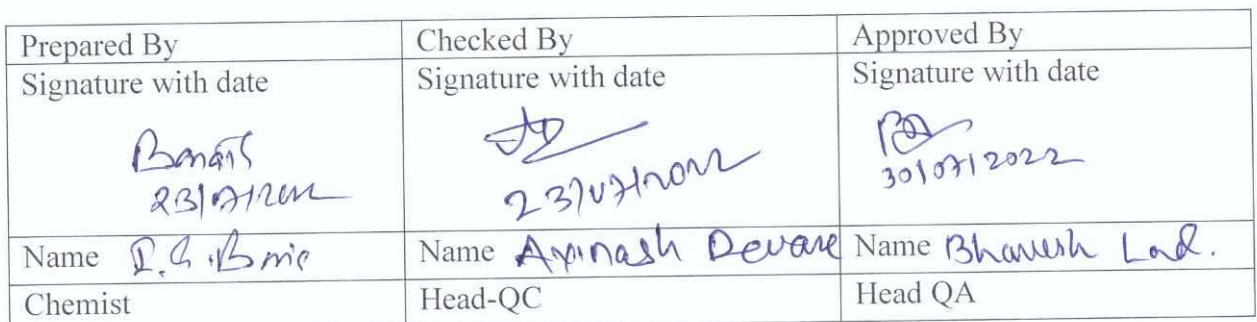 Prepared By Checked By Approved By
Signature with date Signature with date Signature with date
23/07/2022 23/07/2022 30/07/2022
Name Name Avinash Devare Name Bhavesh Lad.
Chemist Head-QC Head QA